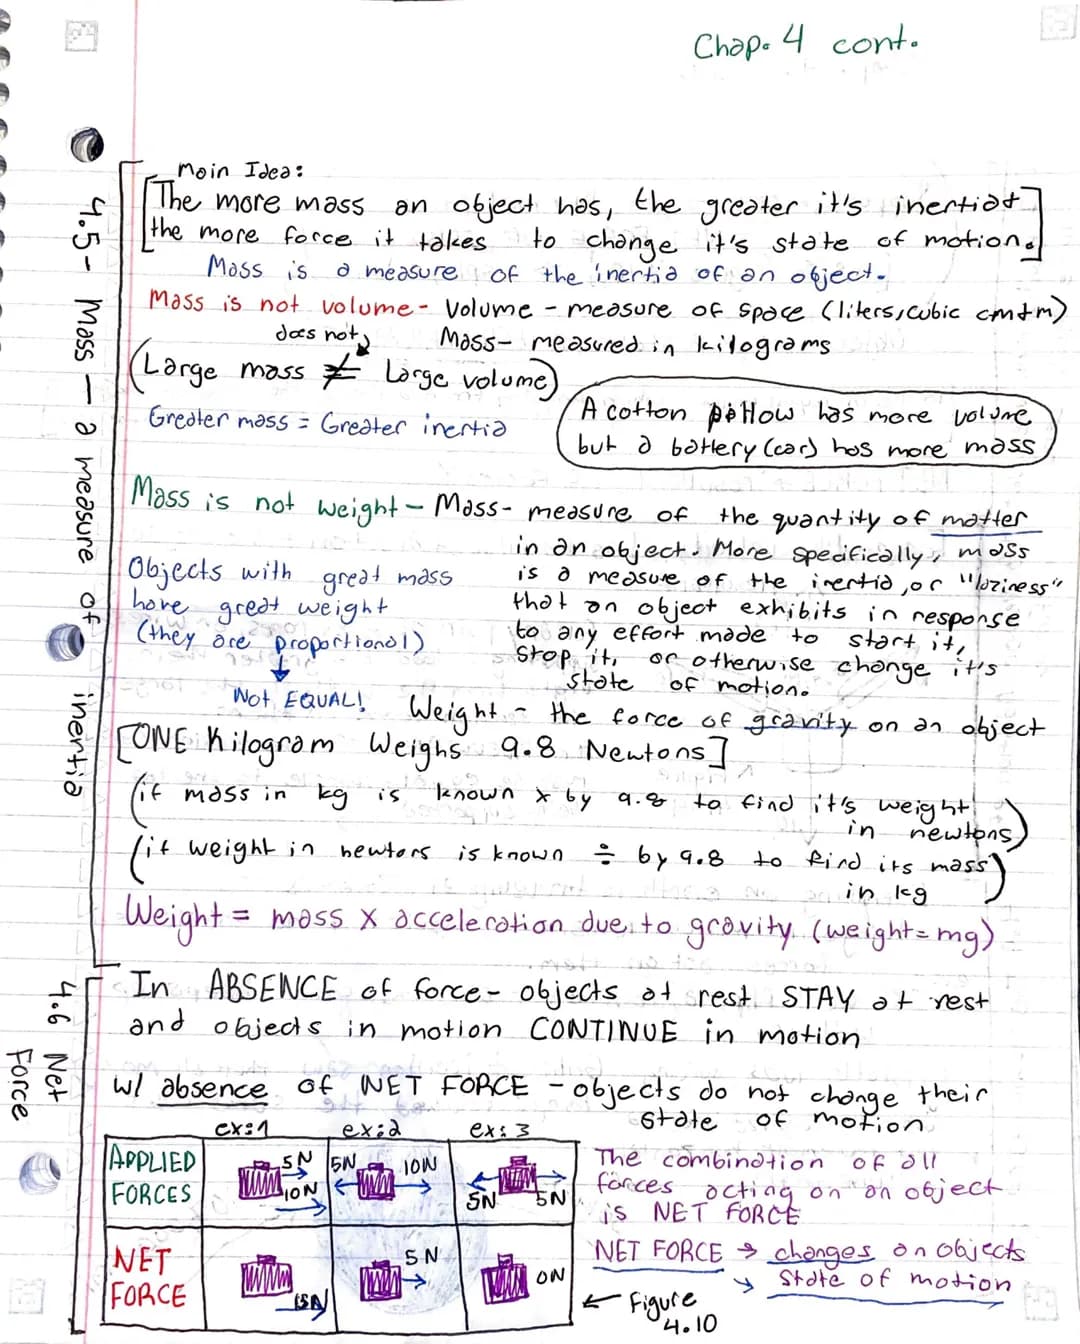 Chap. 4 cont.
Main Idea:
The more mass an object has, the greater it's inertia +
the more force it takes to change it's state of motion.
Mass is a measure of the inertia of an object.
Mass is not volume - Volume - measure of space (liters, cubic cm + m)
does not
Mass - measured in kilograms
(Large mass ≠ Large volume)
Greater mass = Greater inertia
A cotton pillow has more volume
but a battery (car) has more mass
4.5 - Mass - a measure of inertia
Mass is not weight - Mass - measure of the quantity of matter
in an object. More specifically, mass
is a measure of the inertia, or "laziness"
that an object exhibits in response
to any effort made to start it,
stop it, or otherwise change it's
state of motion.
Objects with great mass
have great weight
(they are proportional)
↓
Not EQUAL!
Weight - the force of gravity on an object
[ONE Kilogram Weighs 9.8 Newtons]
(if mass in kg is known x by 9.8 to find it's weight
in newtons)
(if weight in newtons is known ÷ by 9.8 to find its mass
in kg)
Weight = mass x acceleration due to gravity (weight = mg)
4.6 Net
Force
In ABSENCE of force - objects at rest STAY at rest
and objects in motion CONTINUE in motion
w/ absence of NET FORCE - objects do not change their
state of motion
ex: 1 ex: 2 ex: 3
APPLIED
FORCES
5N
10N
5N 10N
5N 5N
NET
FORCE
15N
5N
0N
The combination of all
forces acting on an object
is NET FORCE
NET FORCE → changes an objects
→ state of motion
← Figure
4.10